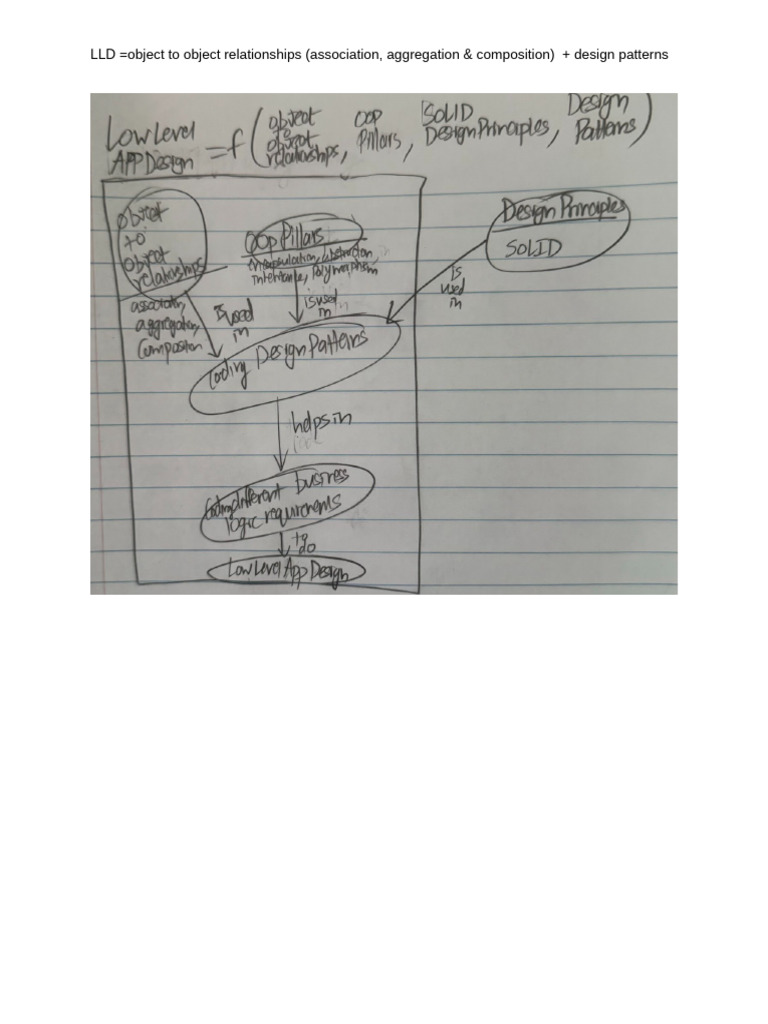 LLD =object to object relationships (association, aggregation & composition)  + design patterns
Low Level
APP Design
= f (
object
to
object
relationships,
OOP
Pillars,
SOLID
Design Principles,
Design
Patterns
)
object
to
object
relationships
association,
aggregation,
Composition
OOP Pillars
encapsulation, abstraction,
inheritance, polymorphism
Design Principles
SOLID
is used
in
is used
in
is
used
in
Coding Design Patterns
helps in
Coding different business
logic requirements
to
do
Low Level App Design